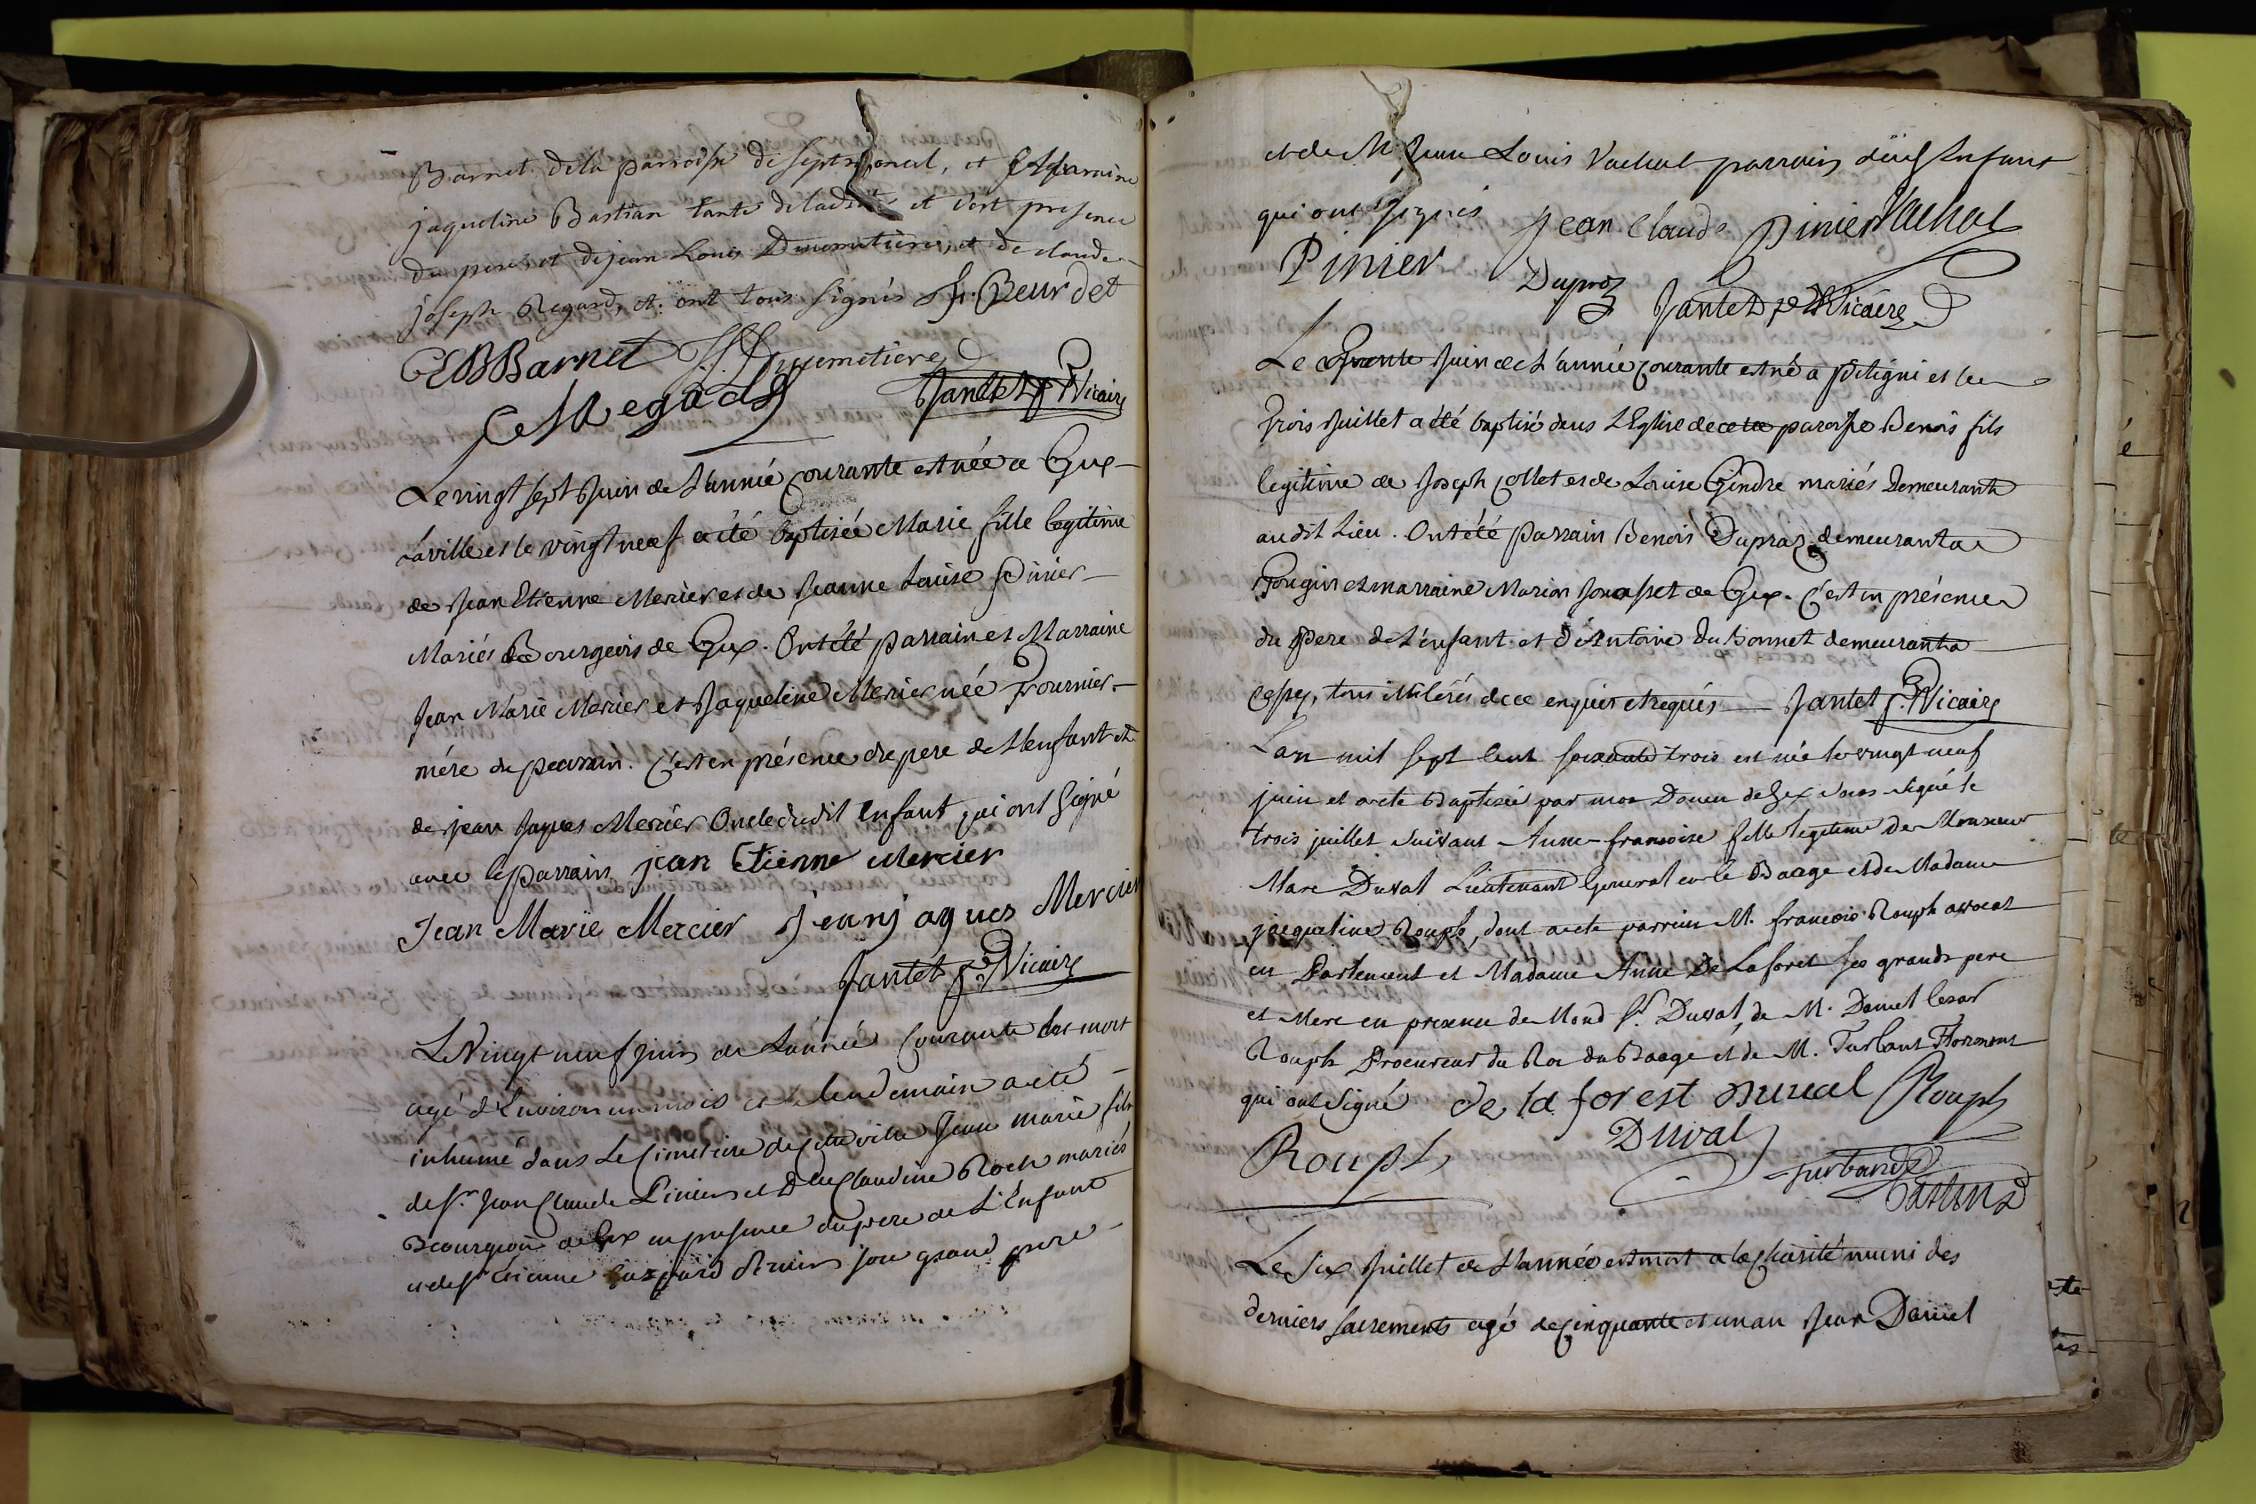 Barnet de la parroisse de septmoncel, et Marraine
jaqueline Bastian tante de ladite et c'est presence
du pere et de jean Louis Dumestiere, et de claude
joseph Regard, et ont tous signés fr. Beurdet
CEBBarnet J. L. Dumetiere
C J Regard Jantet p. Vicaire
Le vingt sept Juin de L'année courante est née a Gex
la ville et le vingt neuf a été baptisée Marie fille légitime
de Jean Etienne Mercier et de Jeanne Louise Pinier
Mariés Bourgeois de Gex. Ont été parrain et Marraine
Jean Marie Mercier et Jaqueline Mercier née Fournier
mére du parrain. C'est en présence du pere de L'enfant et
de jean Jaques Mercier Oncle dudit enfant qui ont signé
avec le parrain jean Etienne Mercier
Jean Marie Mercier Jean jaques Mercier
Jantet p. Vicaire
Le Vingt neuf juin de L'année courante est mort
agé d'Environ un mois et le lendemain a été
inhumé dans Le Cimetiere de cette ville Jean marie fils
de Sr. Jean Claude Pinier et Dlle Claudine Roch mariés
Bourgeois de Gex en presence du pere de L'Enfant
et de Sr Etienne Gaspard Pinier son grand pere
et de Mr Jean Louis Vachat parrain dudt Enfant
qui ont signés Jean Claude Pinier Vachat
Pinier Dupraz Jantet p. Vicaire
Le trente Juin de L'année courante est né a Pitigni et le
trois Juillet a été baptisé dans L'Eglise de cette paroisse Benois fils
legitime de Joseph Collet et de Louise Gindre mariés Demeurants
audit Lieu. Ont été parrain Benois Dupraz demeurant a
Tougin et marraine Marion Jonasset de Gex. C'est en présence
du Pere de L'enfant et d'Antoine Dubonnet demeurant a
Cessy, tous illitérés de ce enquis et requis Jantet p. Vicaire
L'an mil sept Cent soixante trois est née le vingt neuf
juin et a eté Baptisée par moi Doyen de Gex sous signé le
trois juillet suivant Anne-francoise fille legitime de Monsieur
Marc Duval Lieutenant General en le Baage et de Madame
jacqueline Rouph, dont a eté parrein M. francois Rouph avocat
en Parlement et Madame Anne De Laforet ses grands pere
et Mere en presence de Mond Sr. Duval, de M. Daniel Cesar
Rouph Procureur du Roi du Baage et de M. Turbant Floremont
qui ont Signé de la forest duval Rouph
Rouph Duval turband
Castin
Le Six Juillet de L'année est mort a la Charité muni des
derniers sacrements agé de cinquante et un an Jean Daniel